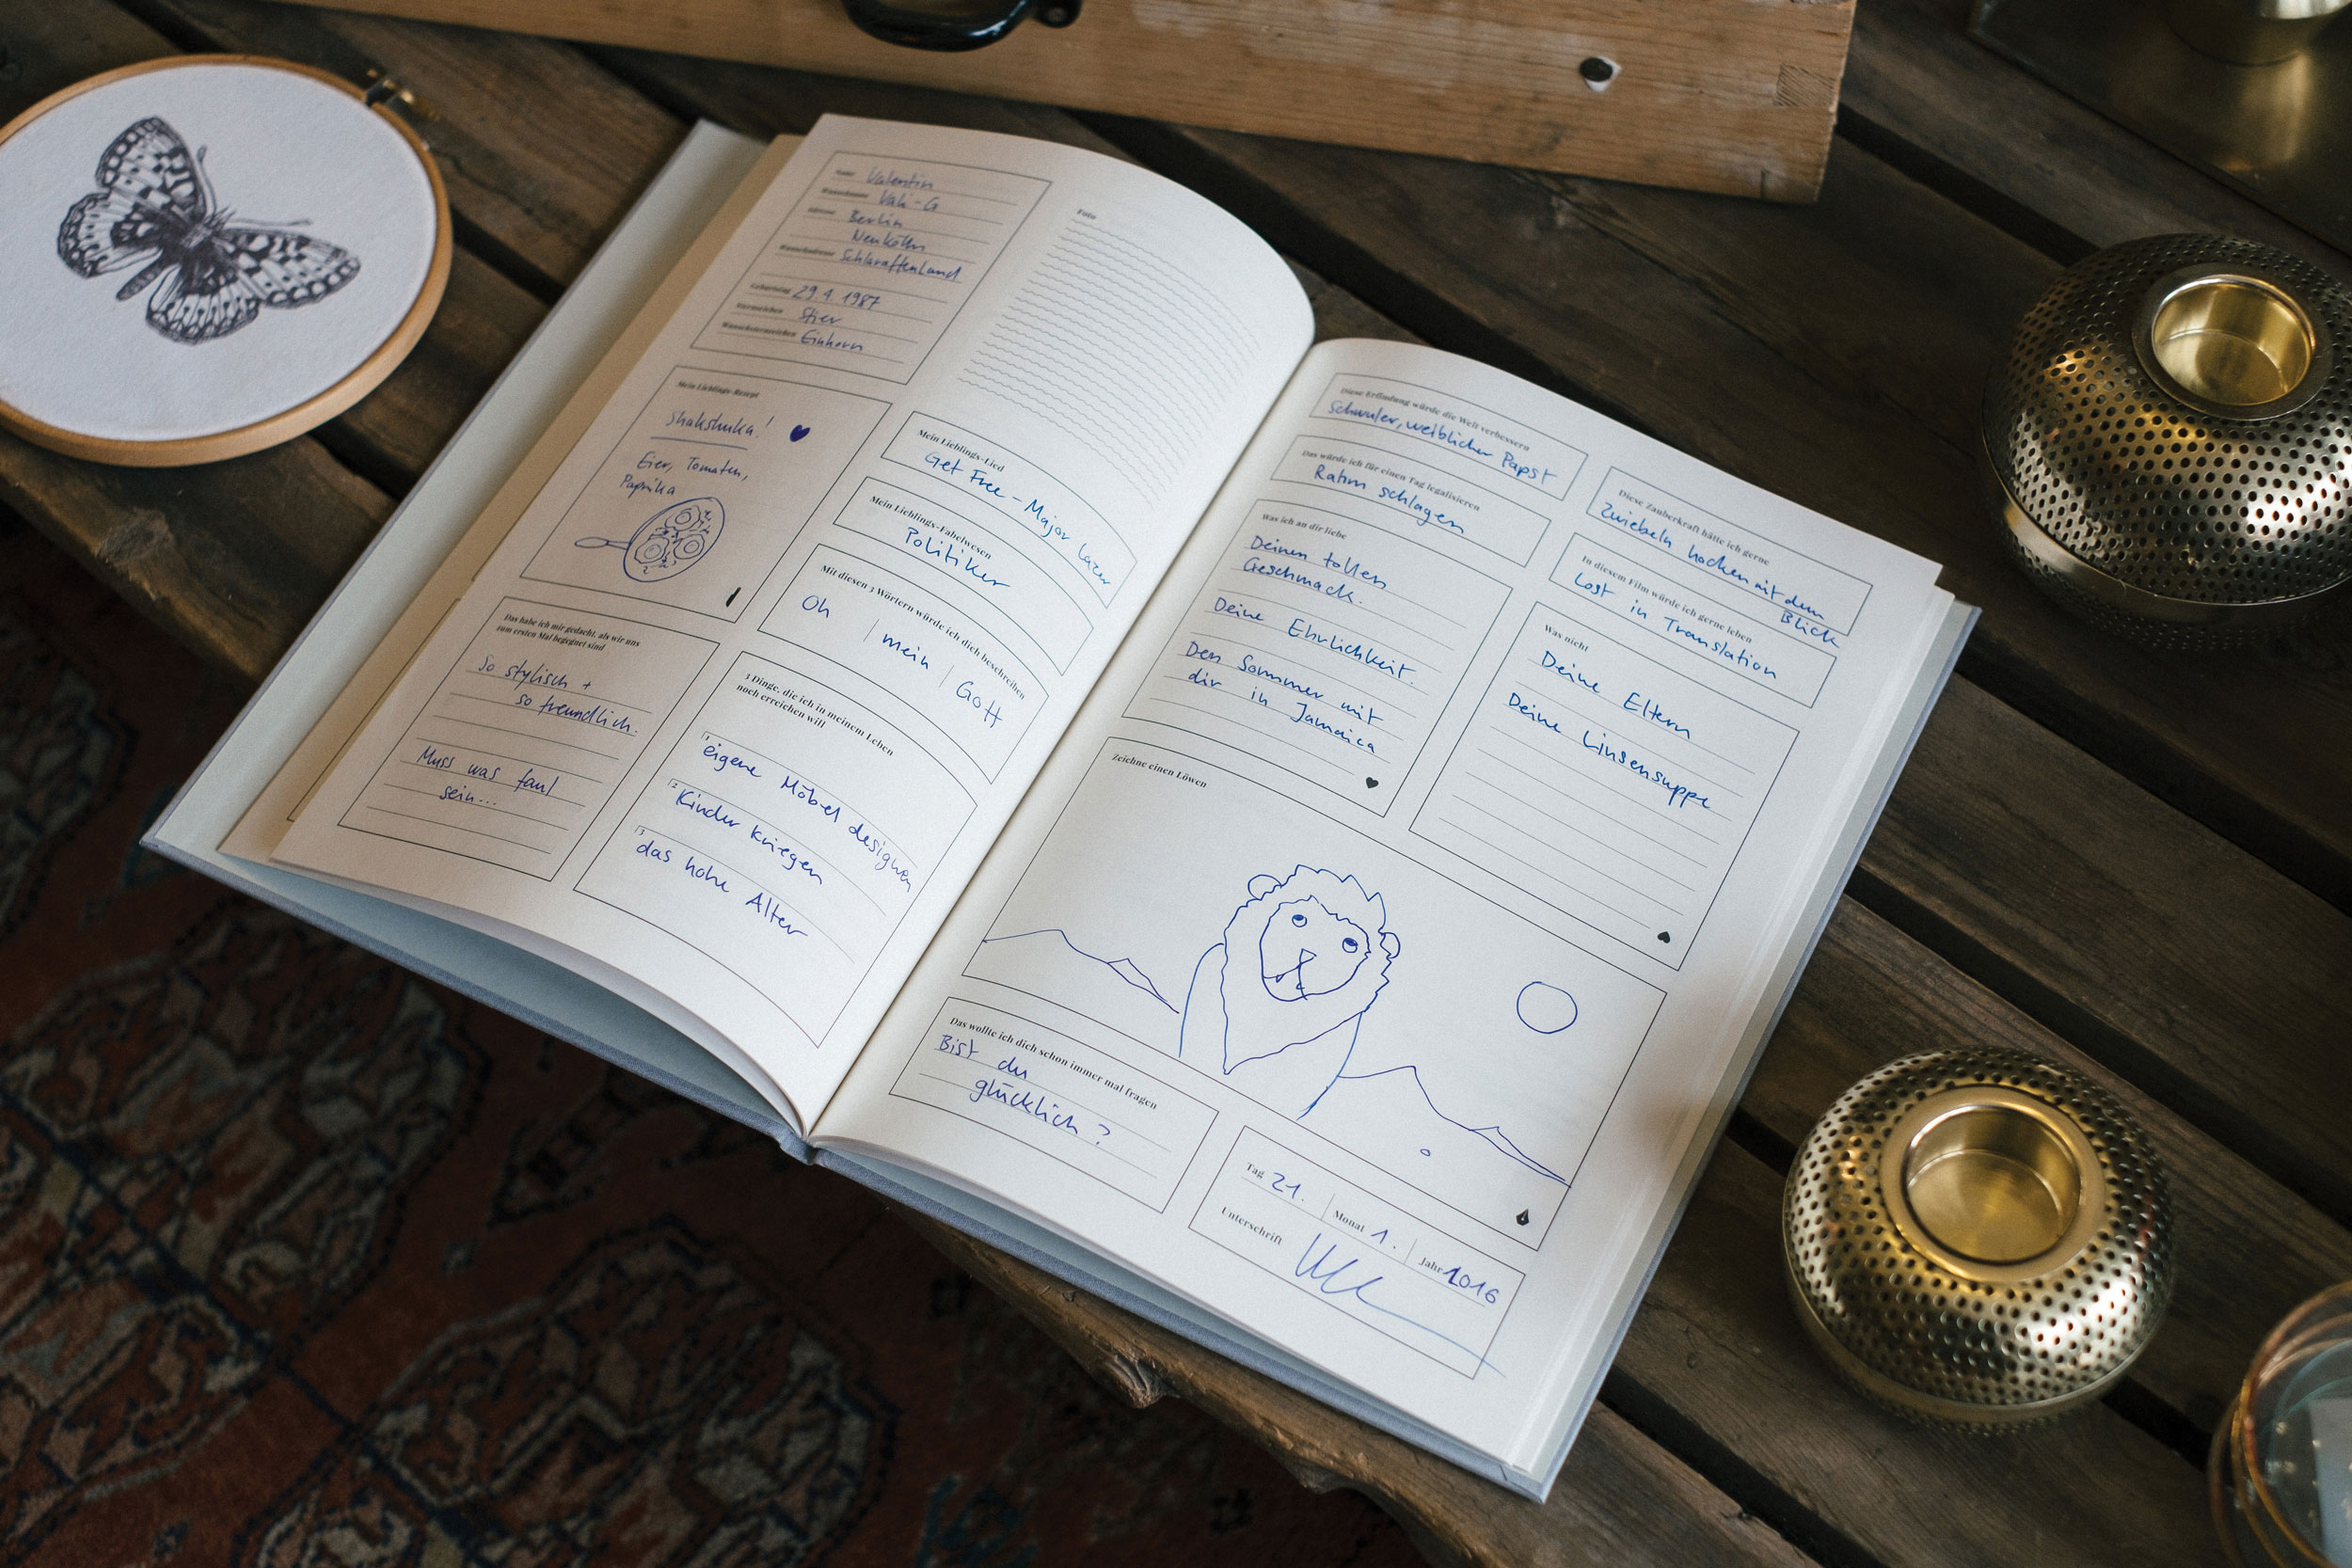 Name Valentin
Wunschname Vali-G
Adresse Berlin
Neukölln
Wunschadresse Schlaraffenland
Geburtstag 29.4.1987
Sternzeichen Stier
Wunschsternzeichen Einhorn
Foto
Mein Lieblings-Rezept
Shakshuka!
Eier, Tomaten,
Paprika
Mein Lieblings-Lied
Get Free - Major Lazer
Mein Lieblings-Fabelwesen
Politiker
Mit diesen 3 Wörtern würde ich dich beschreiben
Oh | mein | Gott
Das habe ich mir gedacht, als wir uns
zum ersten Mal begegnet sind
So stylisch +
so freundlich.
Muss was faul
sein...
3 Dinge, die ich in meinem Leben
noch erreichen will
1 eigene Möbel designen
2 Kinder kriegen
3 das hohe Alter
Diese Erfindung würde die Welt verbessern
Schwuler, weiblicher Papst
Das würde ich für einen Tag legalisieren
Rahm schlagen
Diese Zauberkraft hätte ich gerne
Zwiebeln hacken mit dem
Blick
In diesem Film würde ich gerne leben
Lost in Translation
Was ich an dir liebe
Deinen tollen
Geschmack.
Deine Ehrlichkeit.
Den Sommer mit
dir in Jamaica
Was nicht
Deine Eltern
Deine Linsensuppe
Zeichne einen Löwen
Das wollte ich dich schon immer mal fragen
Bist du
glücklich?
Tag 21. Monat 1. Jahr 2016
Unterschrift